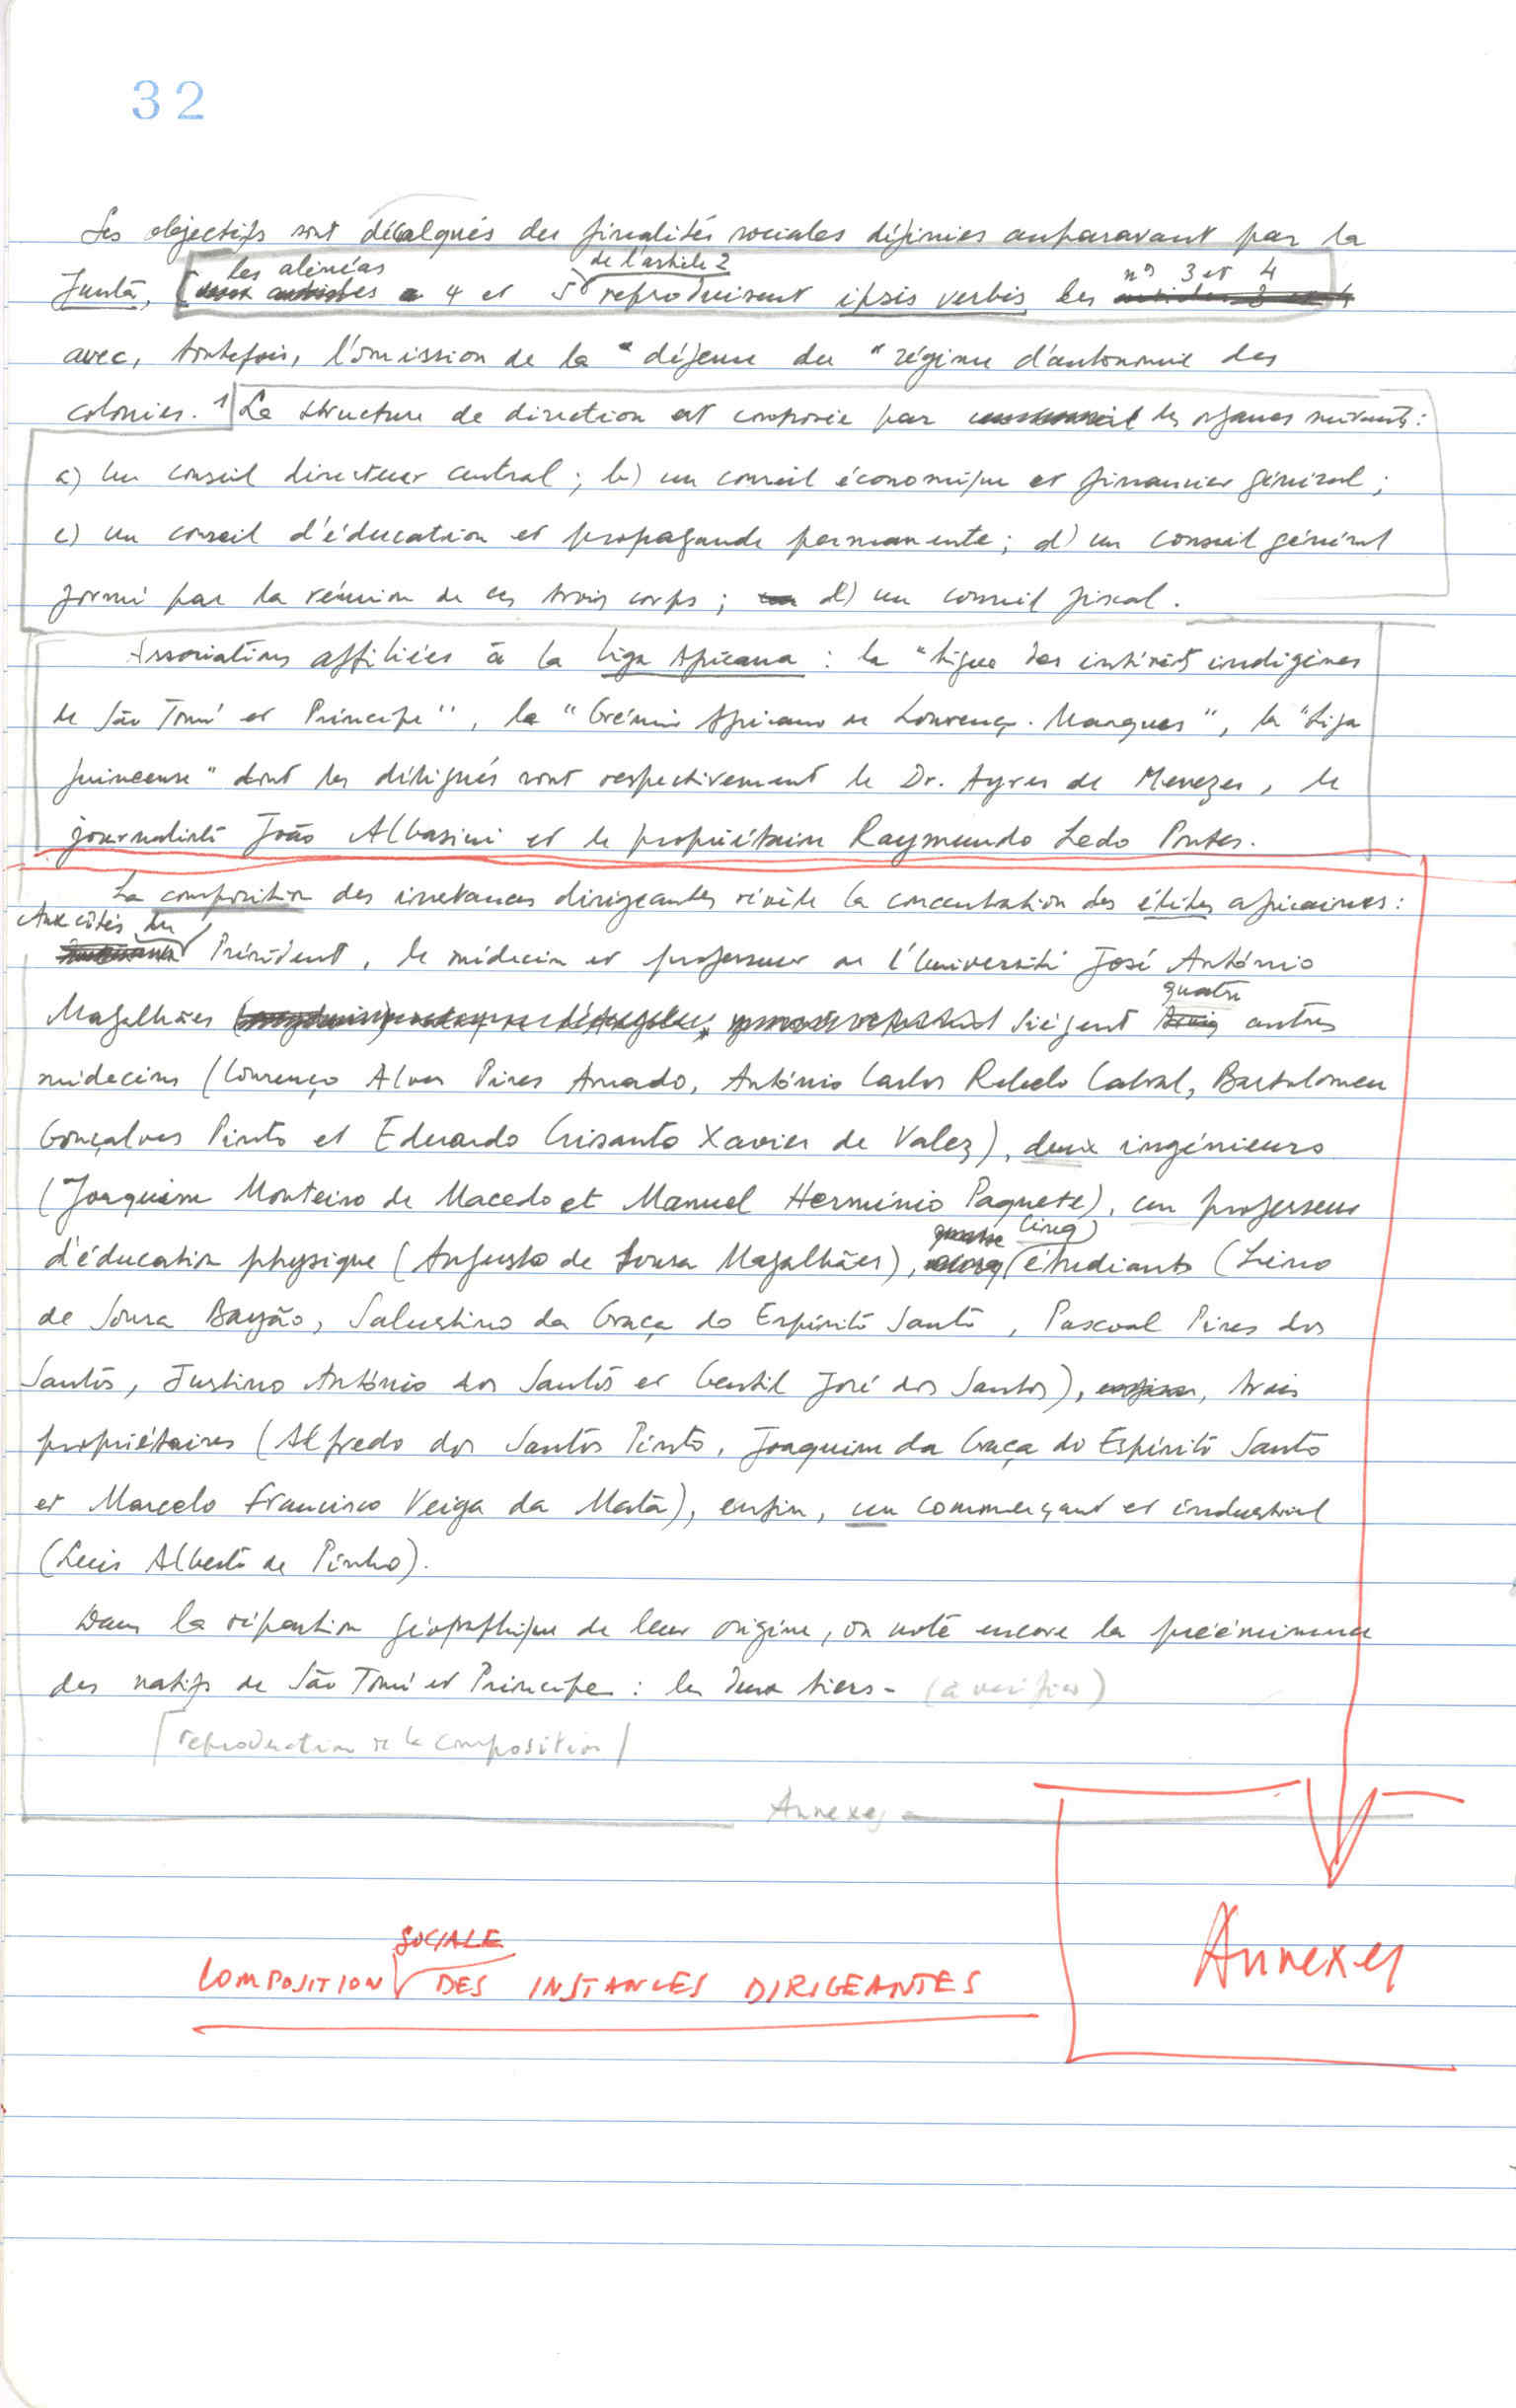 32
Les objectifs sont décalqués des finalités sociales définies auparavant par la
les alinéas de l'article 2 nos 3 et 4
Junta, 4 et 5 reproduisent ipsis verbis les
avec, toutefois, l'omission de la "défense du "régime d'autonomie des
colonies. 1 La structure de direction est composée par les organes suivants:
a) un conseil directeur central; b) un conseil économique et financier général;
c) un conseil d'éducation et propagande permanente; d) un conseil général
formé par la réunion de ces trois corps; d) un conseil fiscal.
Associations affiliées à la Liga Africana: la "Ligue des intérêts indigènes
de São Tomé et Príncipe", la "Grémio Africano de Lourenço-Marques", la "Liga
guineense" dont les délégués sont respectivement le Dr. Ayres de Menezes, le
journaliste João Albasini et le propriétaire Raymundo Ledo Pontes.
La composition des instances dirigeantes révèle la concentration des élites africaines:
Aux côtés du
Président, le médecin et professeur de l'Université José António
quatre
Magalhães siègent trois autres
médecins (Lourenço Alves Pires Amado, António Carlos Rebelo Cabral, Bartolomeu
Gonçalves Pinto et Eduardo Crisanto Xavier de Valez), deux ingénieurs
(Joaquim Monteiro de Macedo et Manuel Hermínio Paquete), un professeur
quatre cinq
d'éducation physique (Augusto de Sousa Magalhães), étudiants (Lino
de Sousa Bayão, Salustino da Graça do Espírito Santo, Pascoal Pires dos
Santos, Justino António dos Santos et Gentil José dos Santos), enfin, trois
propriétaires (Alfredo dos Santos Pinto, Joaquim da Graça do Espírito Santo
et Marcelo Francisco Veiga da Mata), enfin, un commerçant et industriel
(Luis Alberto de Pinho).
Dans la répartition géographique de leur origine, on note encore la prééminence
des natifs de São Tomé et Príncipe: les deux tiers- (à vérifier)
[reproduction de la composition]
Annexes
Annexes
SOCIALE
COMPOSITION DES INSTANCES DIRIGEANTES